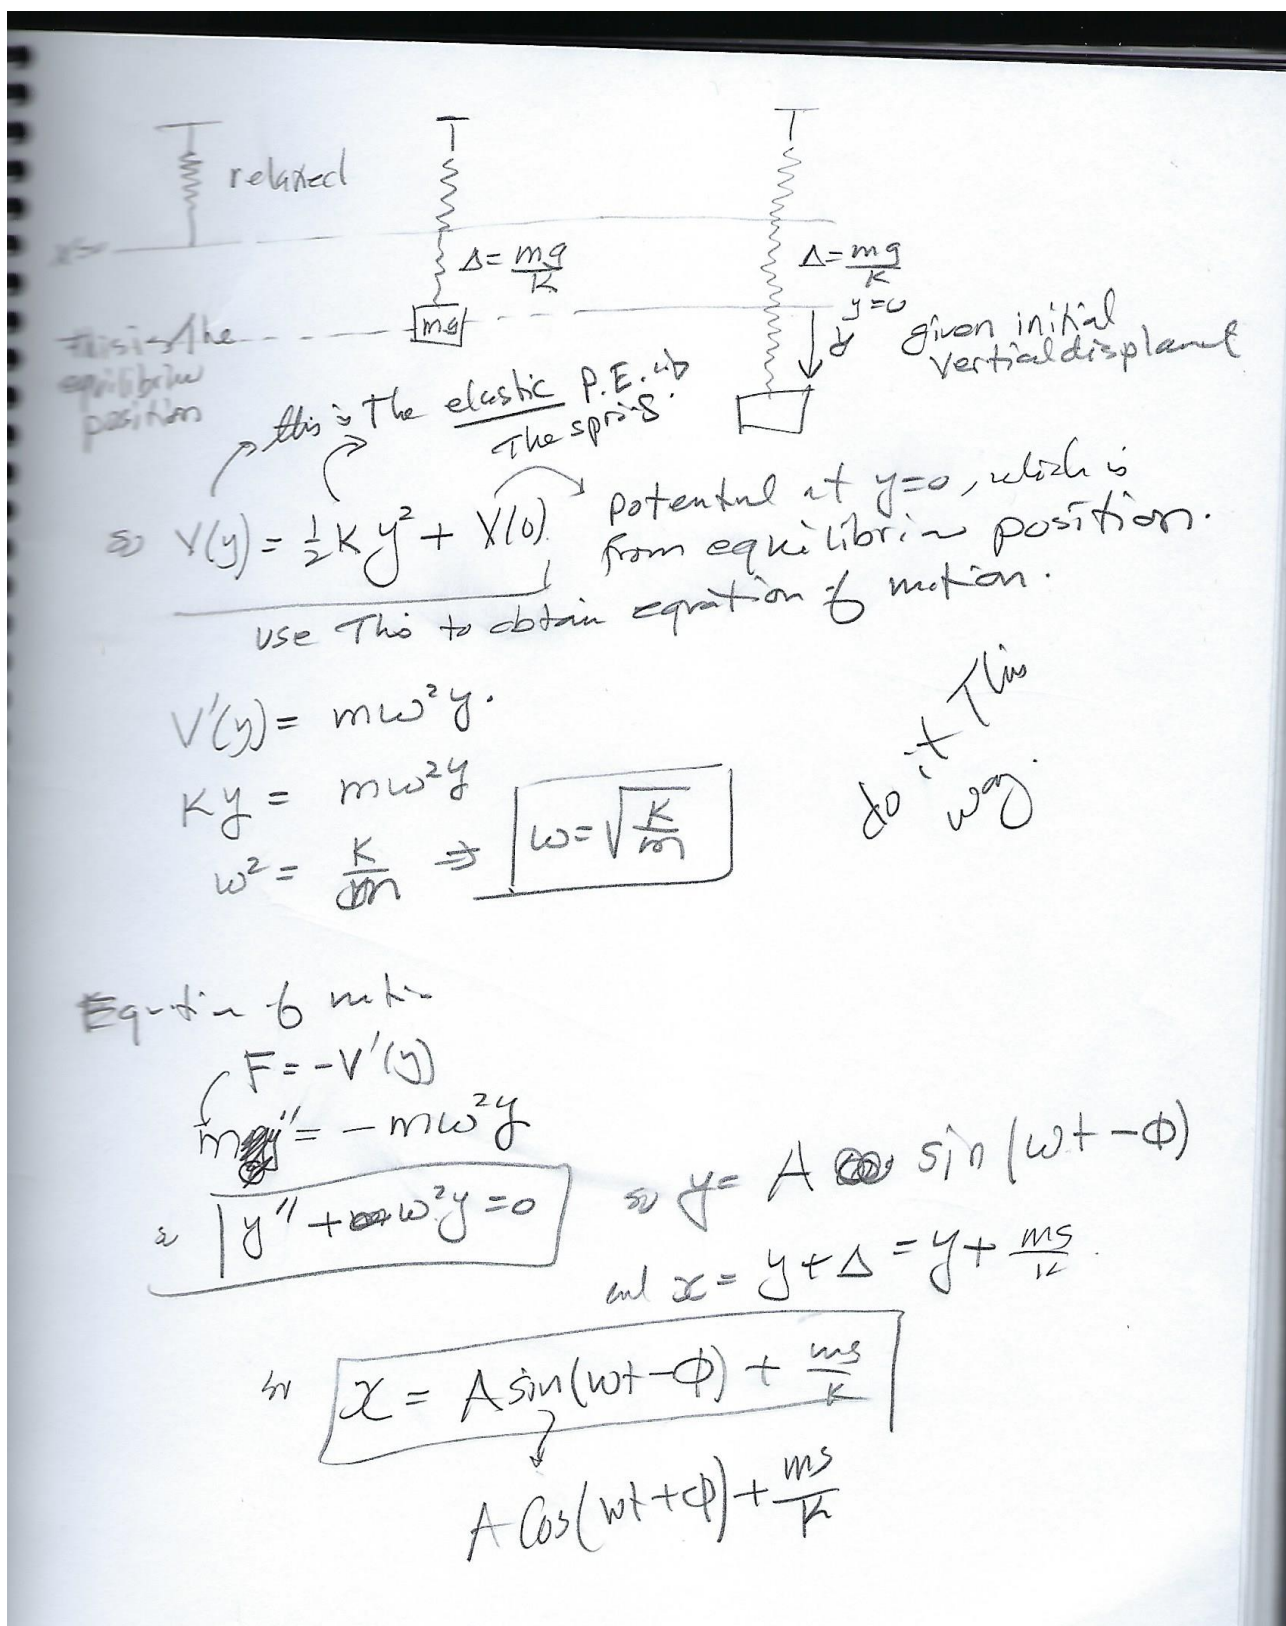 relaxed
x=0
Δ = mg/K
Δ = mg/K
y=0
mg
this is the
equilibrium
position
y
given initial
vertical displacement
this is the elastic P.E. in
the spring.
so V(y) = 1/2 K y² + V(0)
potential at y=0, which is
from equilibrium position.
use this to obtain equation of motion.
V'(y) = mω²y.
Ky = mω²y
ω² = K/m ⇒ ω = √(K/m)
do it this
way.
Equation of motion
F = -V'(y)
my'' = -mω²y
y'' + ω²y = 0
so y = A sin(ωt - Φ)
and x = y + Δ = y + mg/K.
so x = A sin(ωt - Φ) + mg/K
A Cos(ωt + Φ) + mg/K